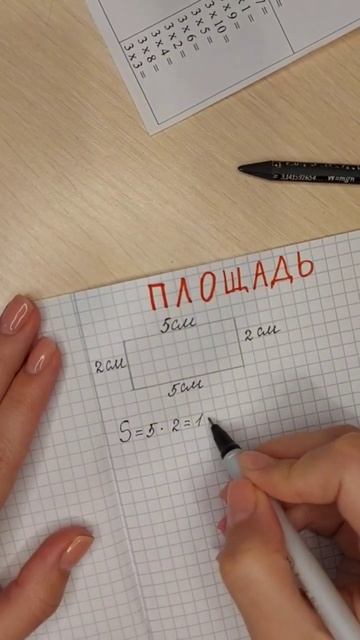 3 × 3 =
3 × 8 =
3 × 4 =
3 × 2 =
3 × 6 =
3 × 5 =
3 × 10 =
× 9 =
× 1 =
7 =
3,141592654 W=mgh
ПЛОЩАДЬ
5см
2см
2см
5см
S = 5 · 2 = 1